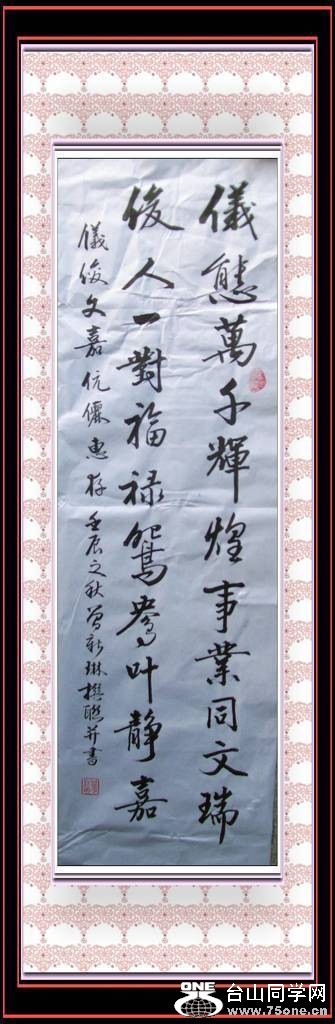 儀態萬千輝煌事業同文瑞
俊人一對福禄鴛鴦叶靜嘉
儀俊文嘉伉儷惠存 壬辰之秋 曾新琳撰聯并書
ONE
台山同学网
www.75one.cn